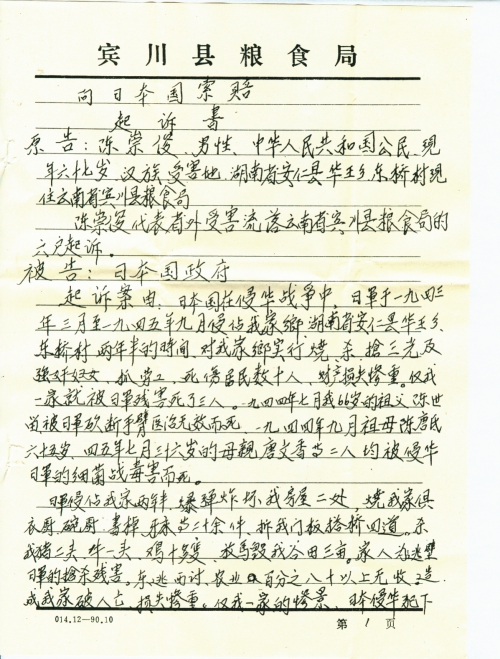 宾川县粮食局
向日本国索赔
起诉書
原告：陈崇俊、男性、中华人民共和国公民、现
年六十七岁、汉族、受害地：湖南省安仁县华王乡东桥村现
住云南省宾川县粮食局
陈崇俊代表省外受害流落云南省宾川县粮食局的
六户起诉。
被告：日本国政府
起诉案由：日本国在侵华战争中，日軍于一九四三
年三月至一九四五年九月侵佔我家鄉湖南省安仁县华王乡、
东桥村两年半的时间，对我家鄉实行燒、杀、搶三光及
强奸妇女、抓劳工，死傷居民数十人，财产损失慘重。仅我
一家就被日軍残害死了三人。一九四四年七月我66岁的祖父陈世
尚被日軍砍断手臂医治无效而死，一九四四年九月祖母陈唐氏
六十五岁，四五年七月三十六岁的母親唐文香等二人均被侵华
日軍的细菌战毒害而死。
日軍侵佔我家两年半，爆弹炸坏我房屋二处，燒我家俱
衣厨、碗厨、書桌、床等三十余件，拆我门板搭桥四道。杀
我猪二头、牛一头、鸡十多隻，放馬毁我谷田三亩。家人为逃避
日軍的搶杀残害，东逃西讨，农业百分之八十以上无收，造
成我家破人亡，损失慘重。仅我一家的慘景，日本侵华犯下
014.12—90.10
第 1 页